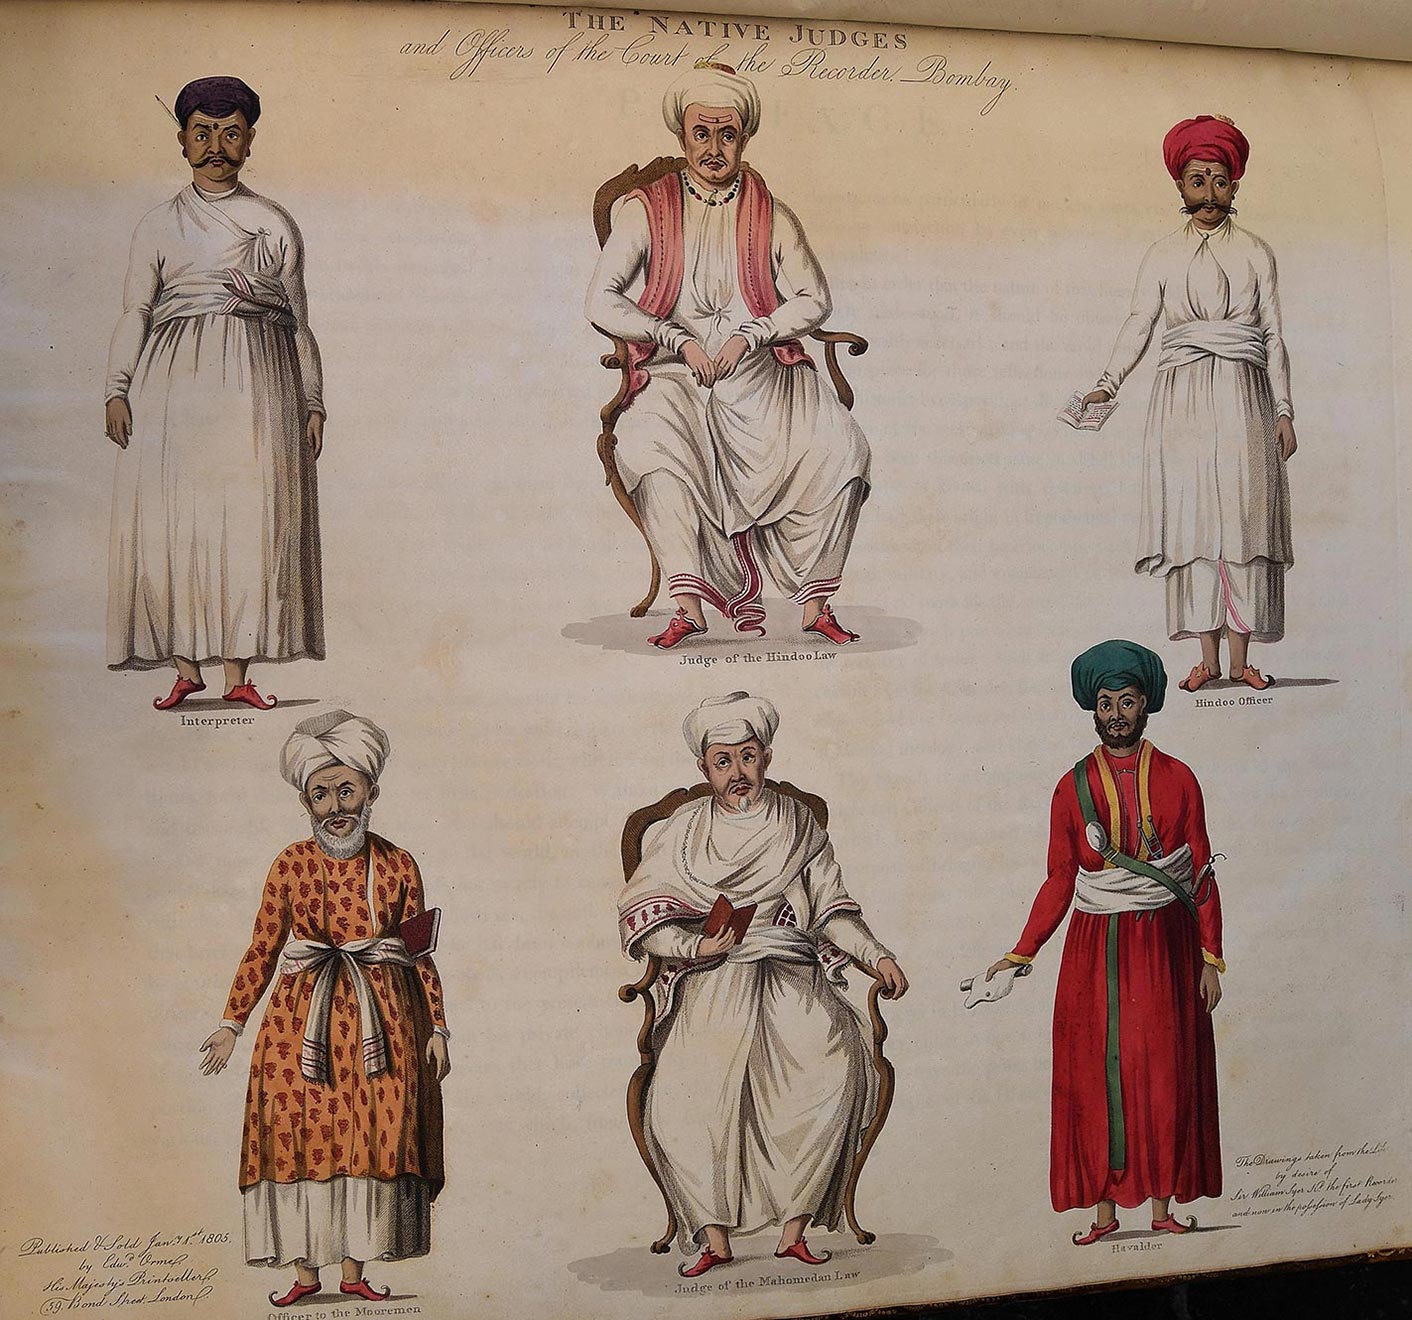 THE NATIVE JUDGES
and Officers of the Court of the Recorder. Bombay.
Interpreter
Judge of the Hindoo Law
Hindoo Officer
Officer to the Mooremen
Judge of the Mahomedan Law
Havalder
Published & Sold Jany. 1st. 1805.
by Edwd. Orme,
His Majesty's Printseller,
59, Bond Street, London.
The Drawings taken from the
by desire of
Sir William Syer Kt. the first Recorder
and now in the possession of Lady Syer.